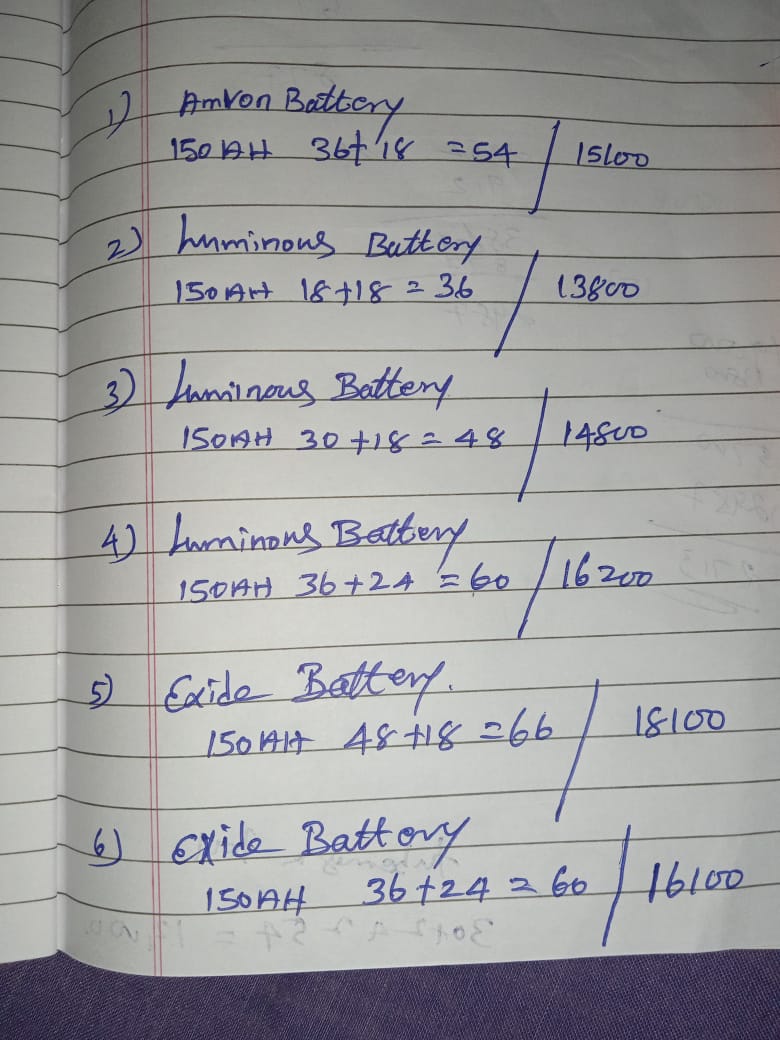 1) Amron Battery
150 AH 36+18 = 54 / 15600
2) Luminous Battery
150AH 18+18 = 36 / 13800
3) Luminous Battery
150AH 30+18 = 48 / 14800
4) Luminous Battery
150AH 36+24 = 60 / 16200
5) Exide Battery.
150AH 48+18 = 66 / 18100
6) Exide Battery
150AH 36+24 = 60 / 16100